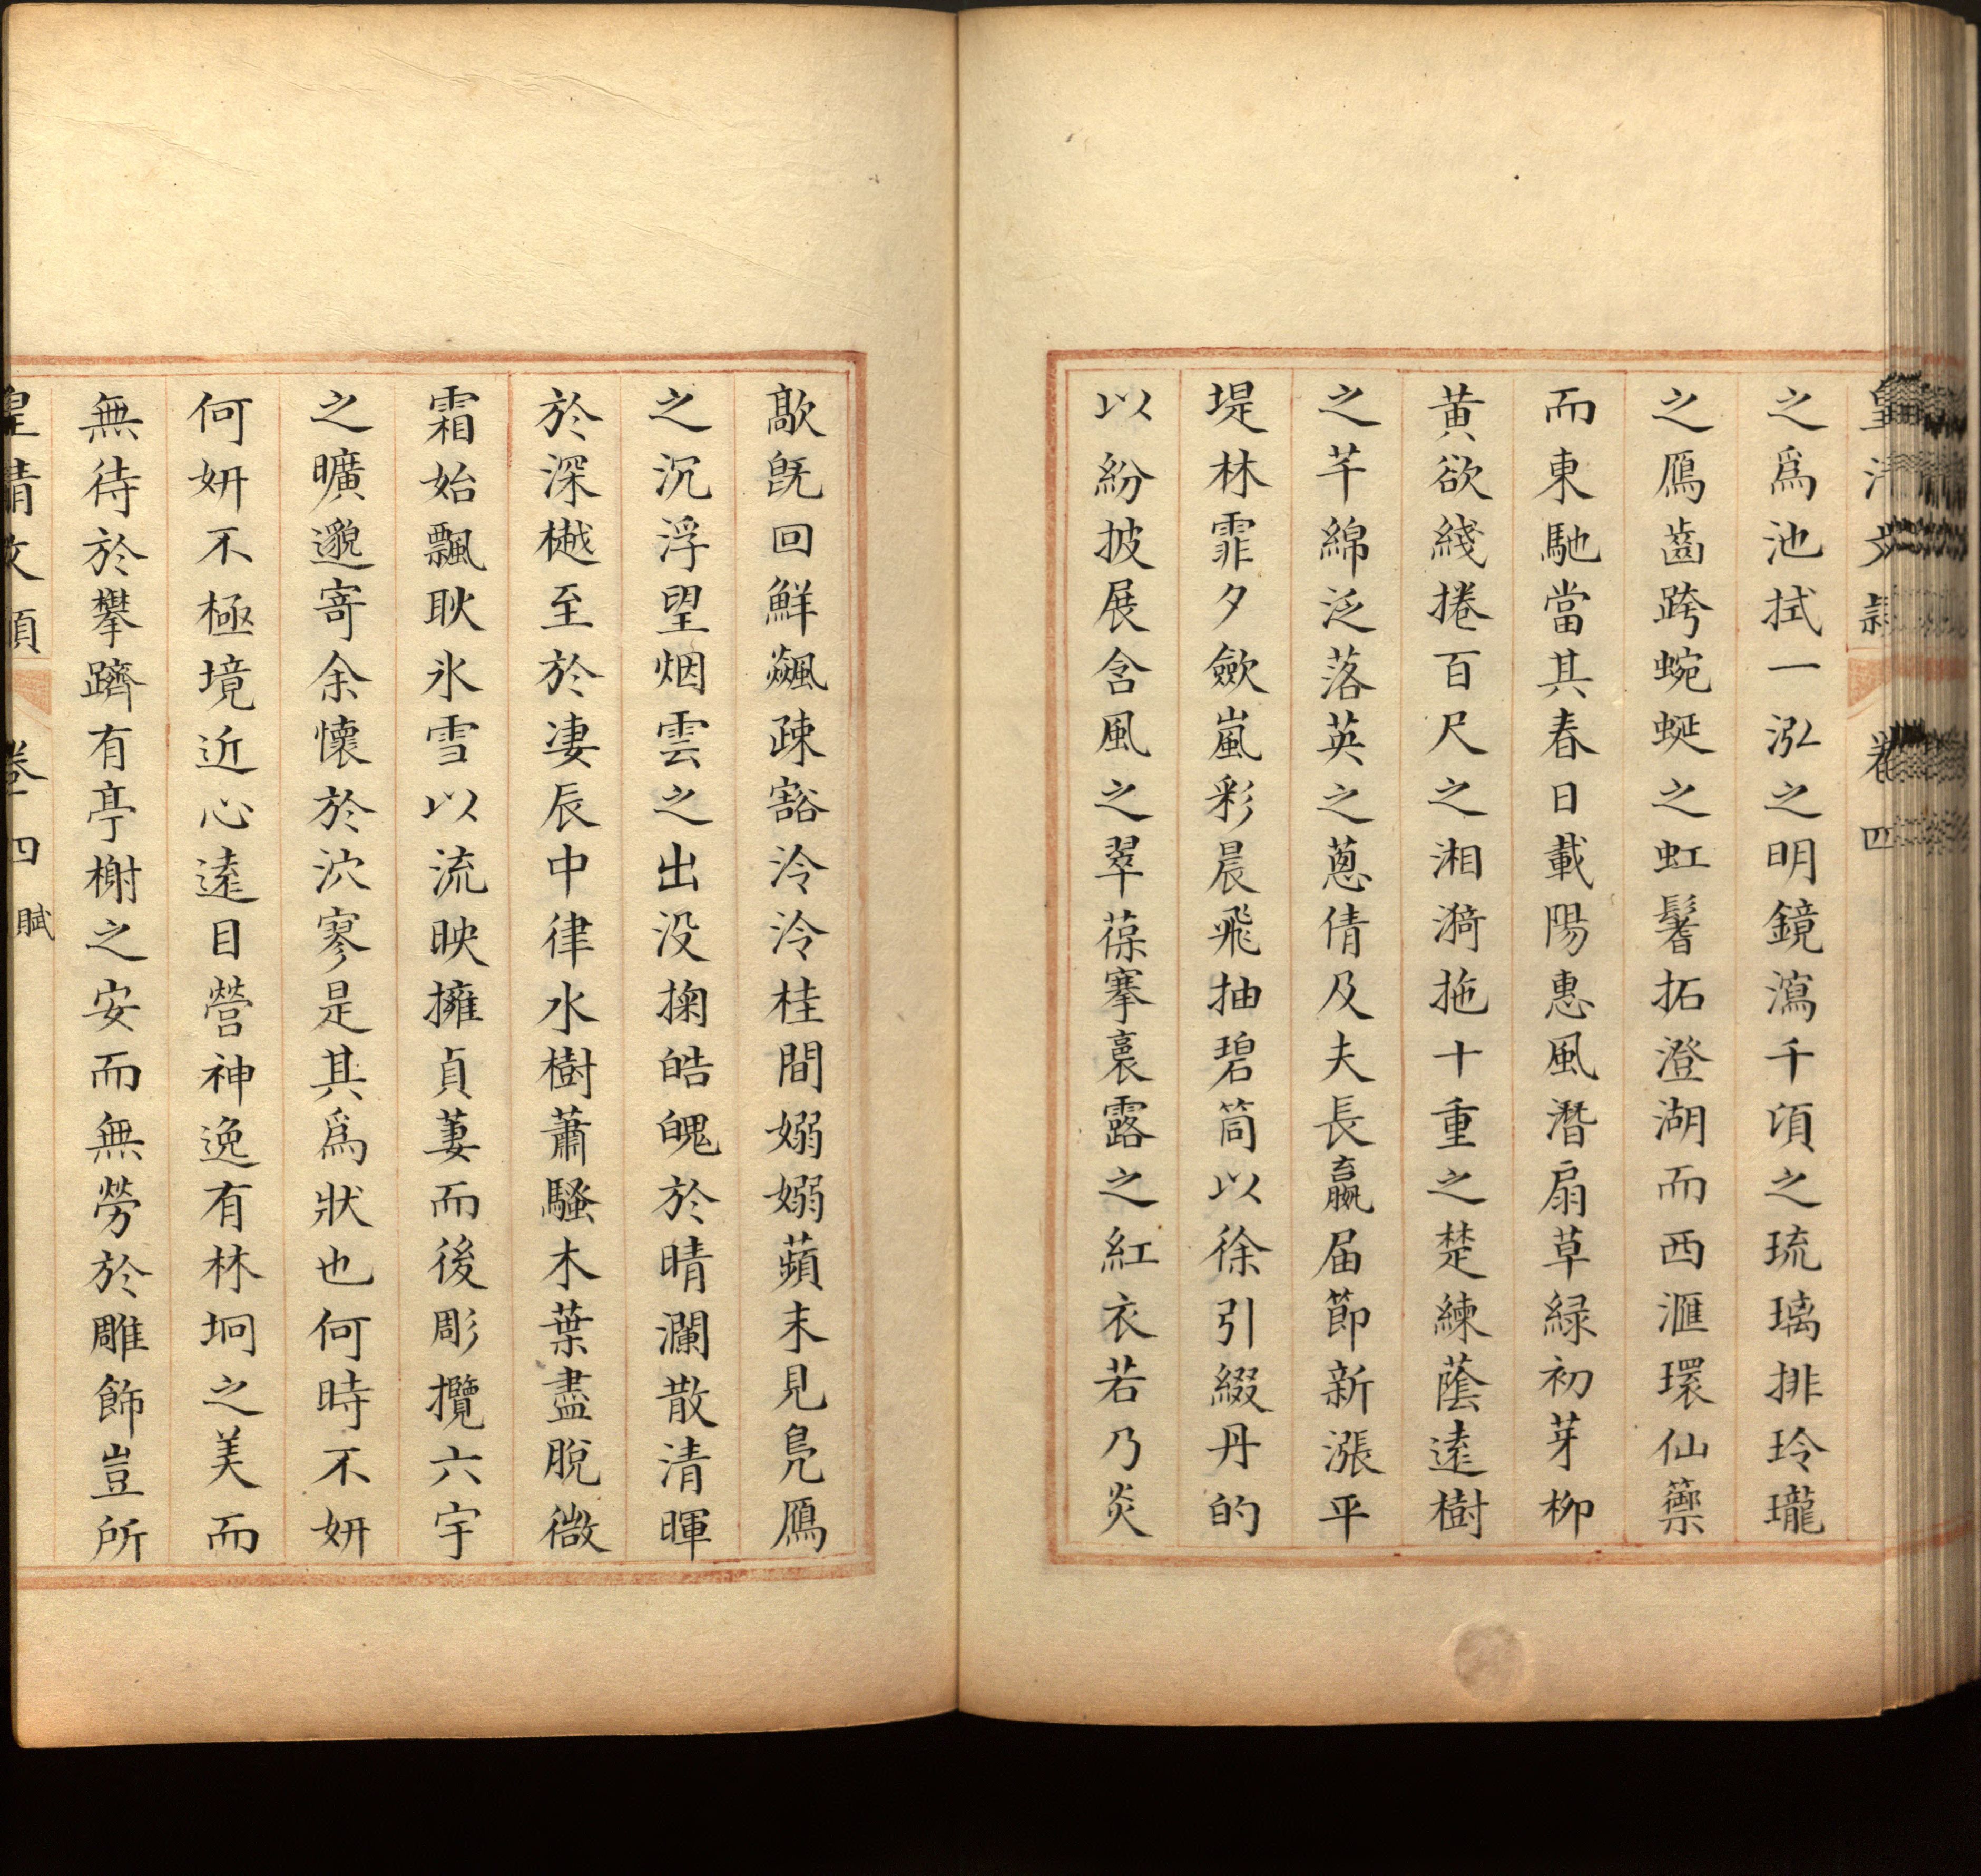 皇清文頴 卷四
之爲池拭一泓之明鏡瀉千頃之琉璃排玲瓏
之鴈齒跨蜿蜒之虹鬐拓澄湖而西滙環仙籞
而東馳當其春日載陽惠風潛扇草緑初芽柳
黄欲綫捲百尺之湘漪拖十重之楚練蔭逺樹
之芊綿泛落英之蔥倩及夫長嬴届節新漲平
堤林霏夕歛嵐彩晨飛抽碧筒以徐引綴丹的
以紛披展含風之翠葆搴裛露之紅衣若乃炎
歊旣回鮮飊疎豁泠泠桂間嫋嫋蘋末見鳧鴈
之沉浮望烟雲之出没掬皓魄於晴瀾散清暉
於深樾至於凄辰中律水樹蕭騷木葉盡脫微
霜始飄耿氷雪以流映擁貞萋而後彫攬六宇
之曠邈寄余懷於泬寥是其爲狀也何時不妍
何妍不極境近心逺目營神逸有林坰之美而
無待於攀躋有亭榭之安而無勞於雕飾豈所
皇清文頴 卷四 賦